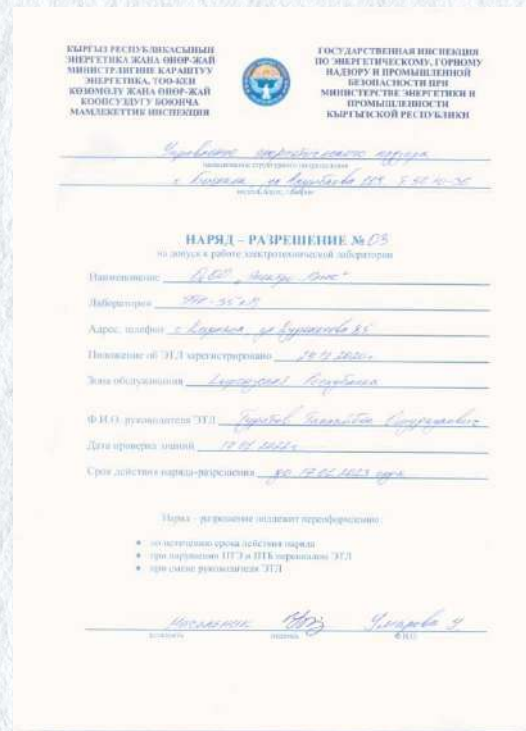 КЫРГЫЗ РЕСПУБЛИКАСЫНЫН
ЭНЕРГЕТИКА ЖАНА ӨНӨР-ЖАЙ
МИНИСТРЛИГИНЕ КАРАШТУУ
ЭНЕРГЕТИКА, ТОО-КЕН
КӨЗӨМӨЛУ ЖАНА ӨНӨР-ЖАЙ
КООПСУЗДУГУ БОЮНЧА
МАМЛЕКЕТТИК ИНСПЕКЦИЯ
ГОСУДАРСТВЕННАЯ ИНСПЕКЦИЯ
ПО ЭНЕРГЕТИЧЕСКОМУ, ГОРНОМУ
НАДЗОРУ И ПРОМЫШЛЕННОЙ
БЕЗОПАСНОСТИ ПРИ
МИНИСТЕРСТВЕ ЭНЕРГЕТИКИ И
ПРОМЫШЛЕННОСТИ
КЫРГЫЗСКОЙ РЕСПУБЛИКИ
Управление энергетического надзора
наименование структурного подразделения
НАРЯД – РАЗРЕШЕНИЕ № 03
на допуск к работе электротехнической лаборатории
Наименование ОсОО
Лаборатория
Адрес, телефон
Положение об ЭТЛ зарегистрировано
Зона обслуживания Кыргызская Республика
Ф.И.О. руководителя ЭТЛ
Дата проверки знаний 17.02.2022г
Срок действия наряда-разрешения до 17.02.2023 года
Наряд – разрешение подлежит переоформлению:
• по истечению срока действия наряда
• при нарушении ПТЭ и ПТБ персоналом ЭТЛ
• при смене руководителя ЭТЛ
Начальник Умарова У
должность подпись Ф.И.О.